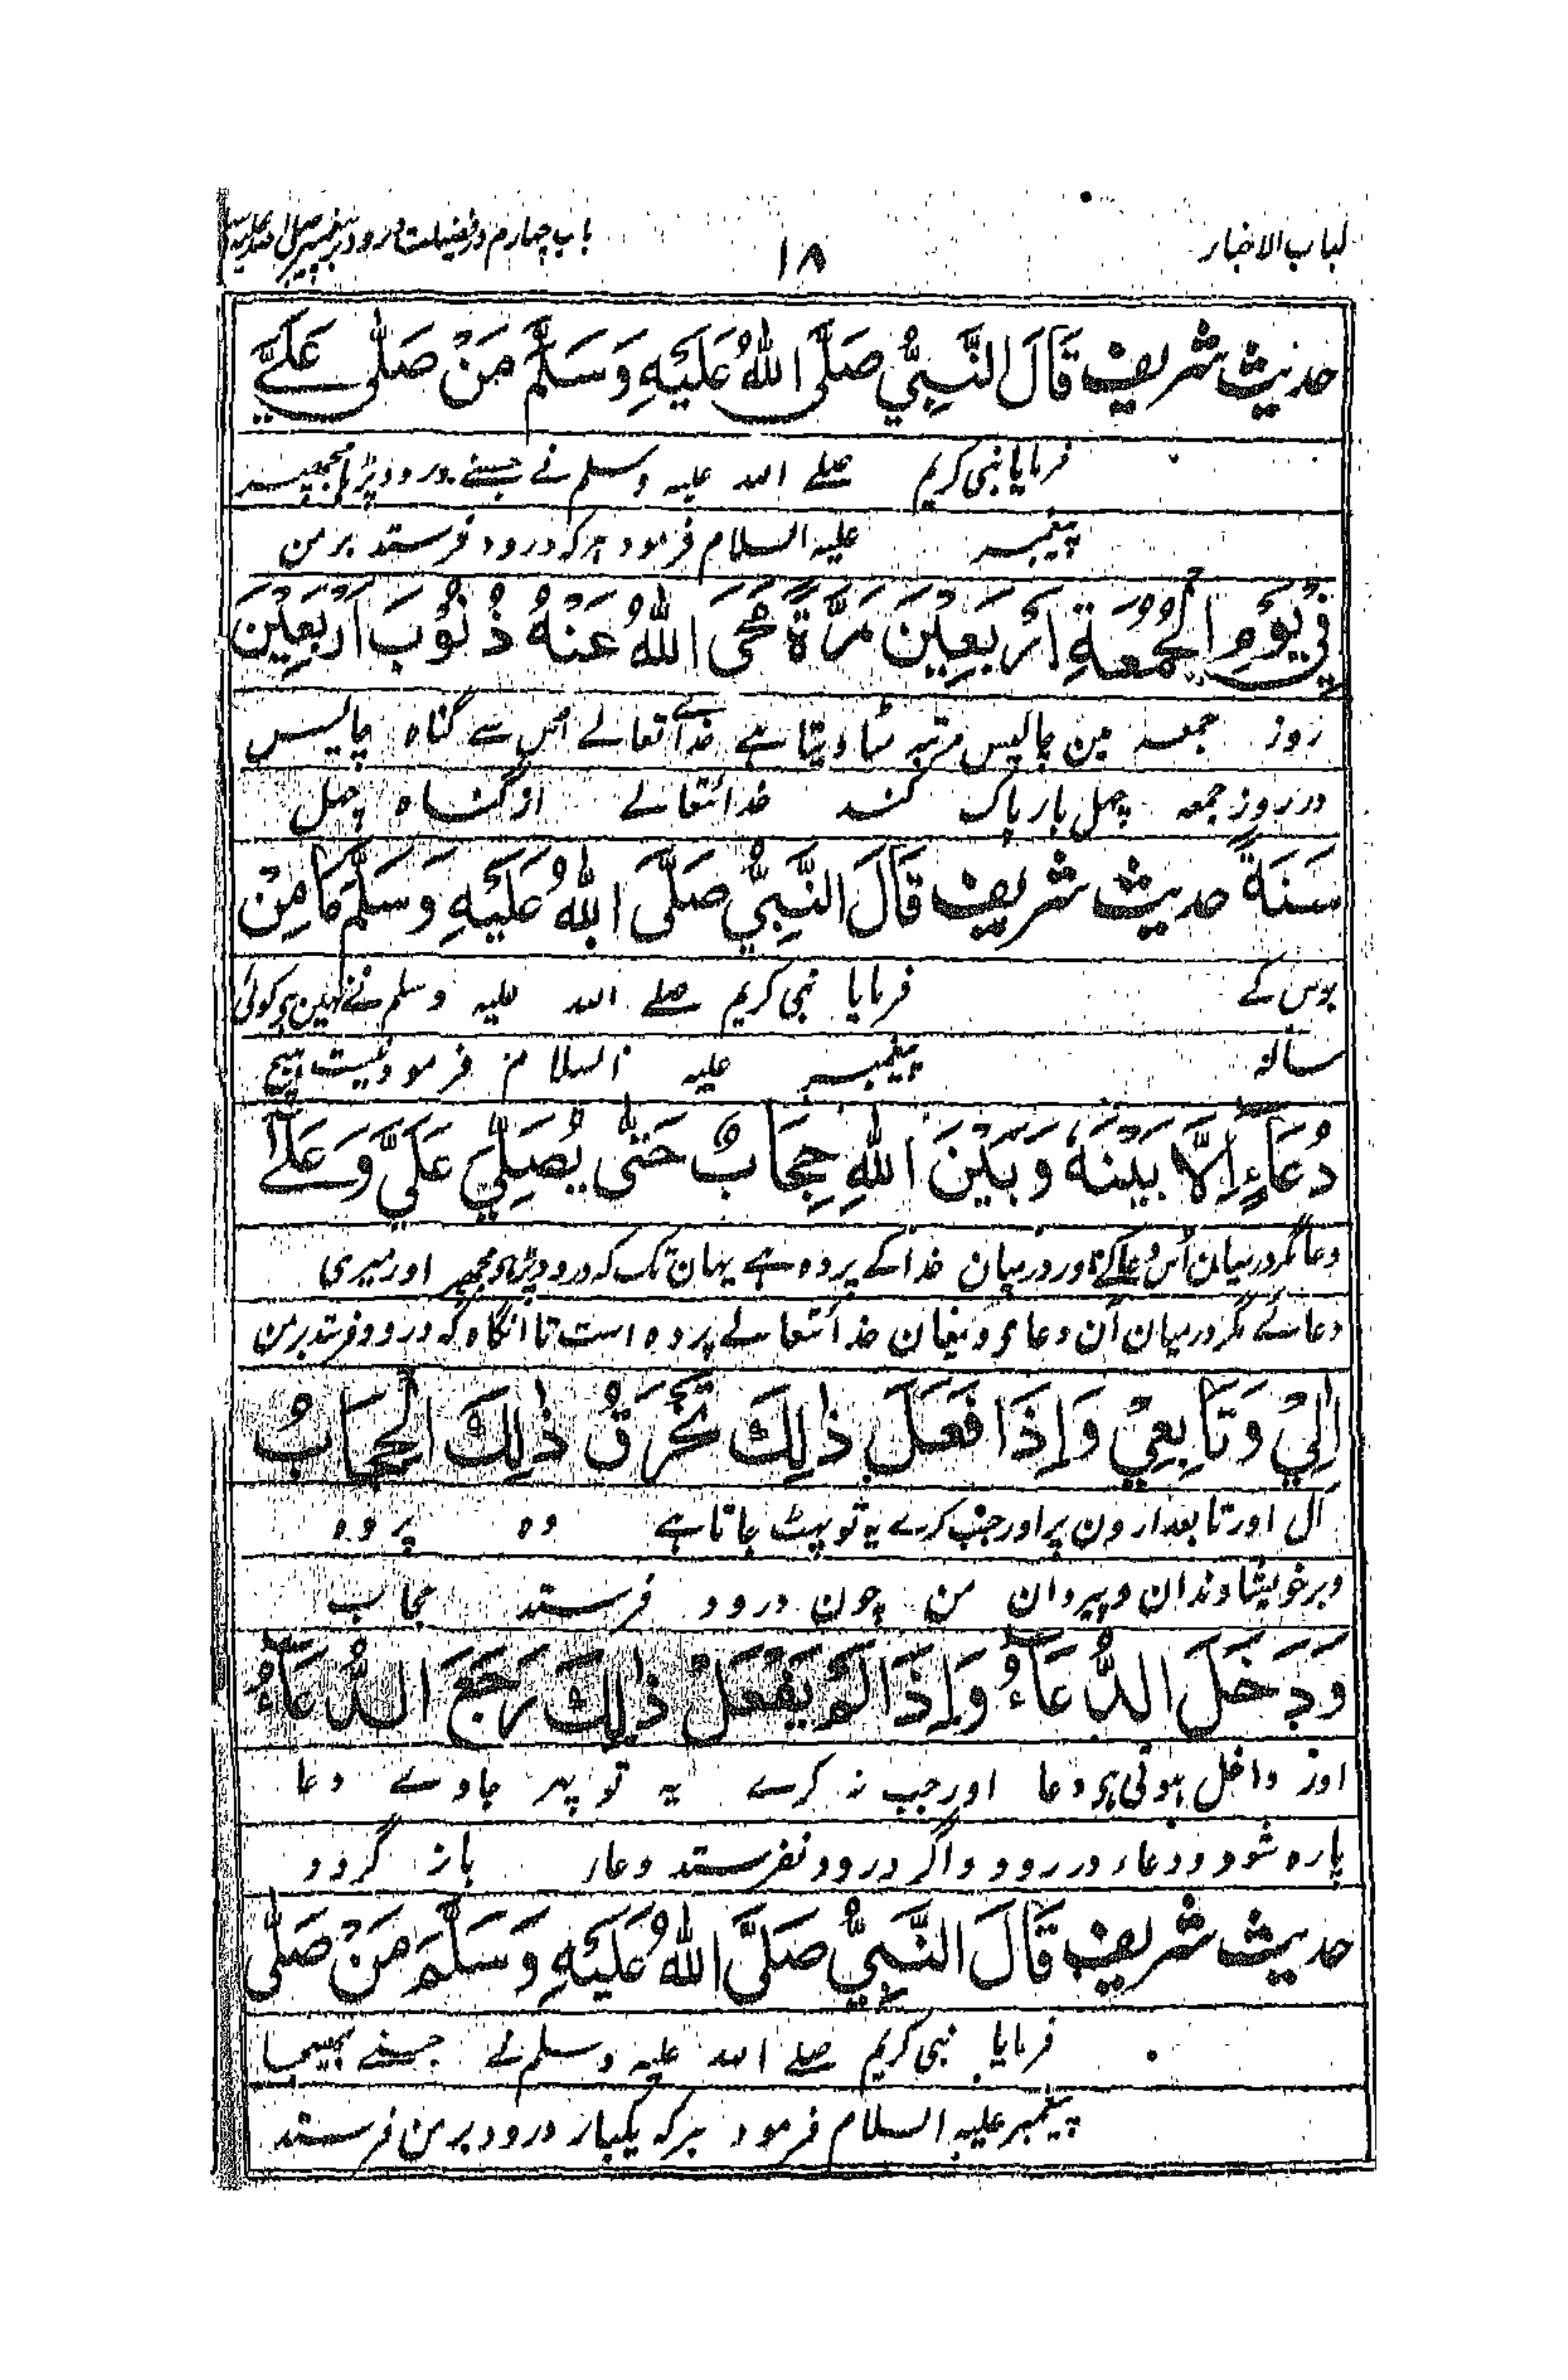 لباب الاخبار ۱۸ باب چہارم در فضیلت درود بر پیغمبر صلی اللہ علیہ
حدیث شریف قَالَ النَّبِيُّ صَلَّى اللهُ عَلَيْهِ وَسَلَّمَ مَنْ صَلّٰى عَلَيَّ
فرمایا نبی کریم صلے اللہ علیہ وسلم نے جسنے درود پڑھا مجھپر
پیغمبر علیہ السلام فرمود ہر کہ درود فرستد بر من
فِيْ يَوْمِ الْجُمُعَةِ اَرْبَعِيْنَ مَرَّةً مَحَى اللهُ عَنْهُ ذُنُوْبَ اَرْبَعِيْنَ
روز جمعہ مین چالیس مرتبہ مٹا دیتا ہے خداے تعالے اس سے گناہ چالیس
در روز جمعہ چہل بار پاک کند خدا تعالے از گناہ چہل
سَنَةً حدیث شریف قَالَ النَّبِيُّ صَلَّى اللهُ عَلَيْهِ وَسَلَّمَ مَا مِنْ
برس کے فرمایا نبی کریم صلے اللہ علیہ وسلم نے نہین ہے کوئی
سالہ پیغمبر علیہ السلام فرمود نیست ہیچ
دُعَاءٍ اِلَّا بَيْنَهٗ وَبَيْنَ اللهِ حِجَابٌ حَتّٰى يُصَلِّيَ عَلَيَّ وَعَلٰے
دعا مگر درمیان اُس دعا کے اور درمیان خدا کے پردہ ہے یہان تک کہ درود پڑھے مجھپر اور میری
دعائے مگر درمیان آن دعا و میان خدا تعالے پردہ است تا انگاہ کہ درود فرستد بر من
اٰلِيْ وَتَابِعِيْ وَاِذَا فَعَلَ ذٰلِكَ تَخَرَّقُ ذٰلِكَ الْحِجَابُ
آل اور تابعدارون پر اور جب کرے یہ تو پہٹ جاتا ہے وہ پردہ
و بر خویشاوندان و پیروان من چون درود فرستد حجاب
وَدَخَلَ الدُّعَاءُ وَاِذَا لَمْ يَفْعَلْ ذٰلِكَ رَجَعَ الدُّعَاءُ
اور داخل ہوتی ہے دعا اور جب نہ کرے یہ تو پہر جاوے دعا
پارہ شود و دعا در رود و اگر درود نفرستد دعا باز گردد
حدیث شریف قَالَ النَّبِيُّ صَلَّى اللهُ عَلَيْهِ وَسَلَّمَ مَنْ صَلّٰى
فرمایا نبی کریم صلے اللہ علیہ وسلم نے جسنے بھیجا
پیغمبر علیہ السلام فرمود ہر کہ یکبار درود بر من فرستد